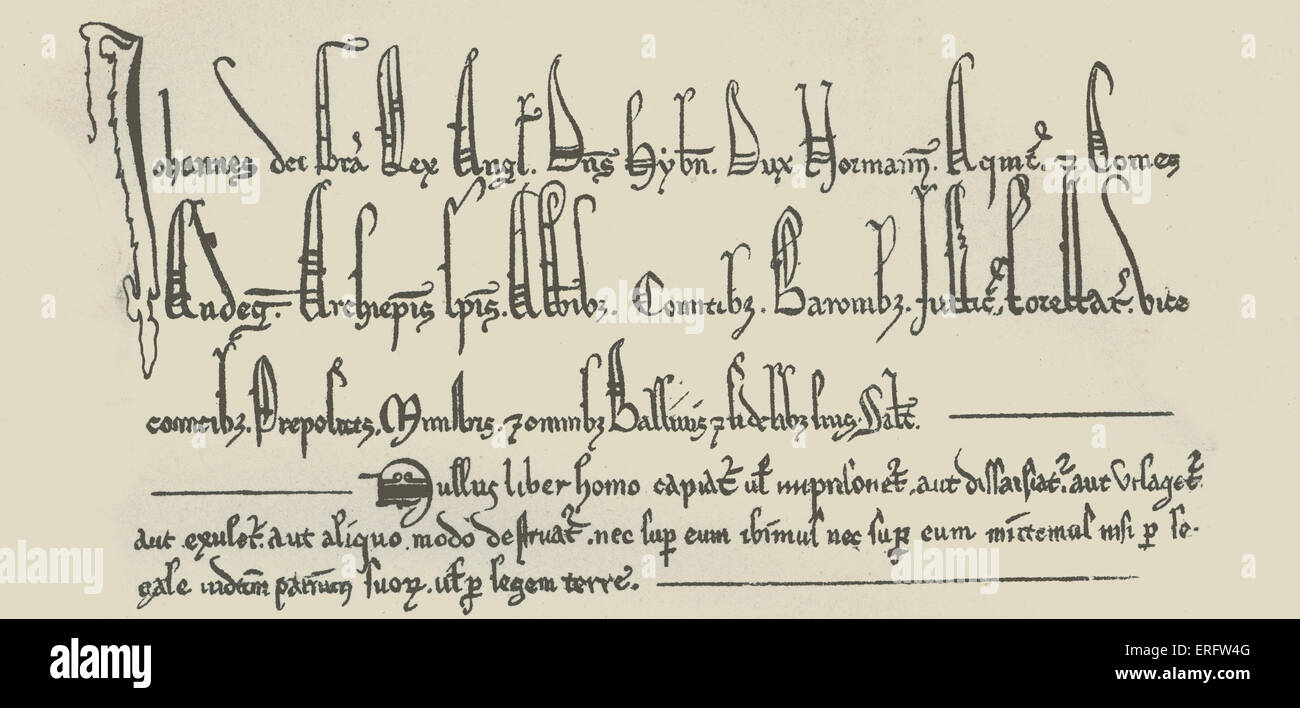 Johannes dei Gra Rex Angl. Dns Hybn. Dux Normann. Aquit. ⁊ Comes
Andeg. Archiepis Epis. Abbibz. Comitibz. Baronibz. Justic. Forestar. Vice
comitibz. Prepositis. Ministris. ⁊ omnibz Ballivis ⁊ fidelibz suis. Salt.
Nullus liber homo capiat. ul imprisonet. aut dissaisiat. aut Utlaget.
aut exulet. aut aliquo modo destruat. nec sup eum ibimus nec sup eum mittemus nisi p le-
gale iudicium parium suoꝝ. ul p legem terre.
alamy
alamy stock photo
ERFW4G
www.alamy.com